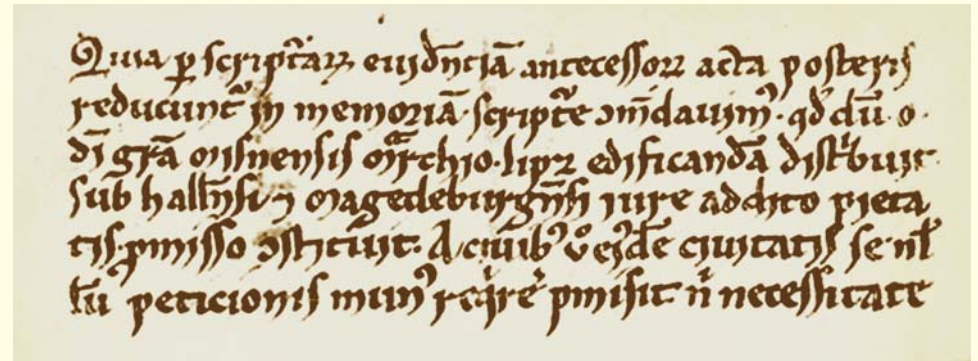 Quia ꝑ sc̲ript̄arꝝ euid̄nciā antecessoꝝ acta posteris
reducunt᷑ in memoriā script̄e ꝯm̄dauim᷒· qd̓ dn̄· o·
dī gr̄a misnensis Mᷓrchio· lipꝫ edificandā distͥbuit
sub halln̄si ⁊ Magedeburgn̄si iure addito pieta
tis ꝓmisso ꝯstituit· A ciuib᷒ ů eiꝰdē ciuitatis se nl̄
lū peticionis mun᷒ reqͥrͤe ꝓmisit nͥ necessitate